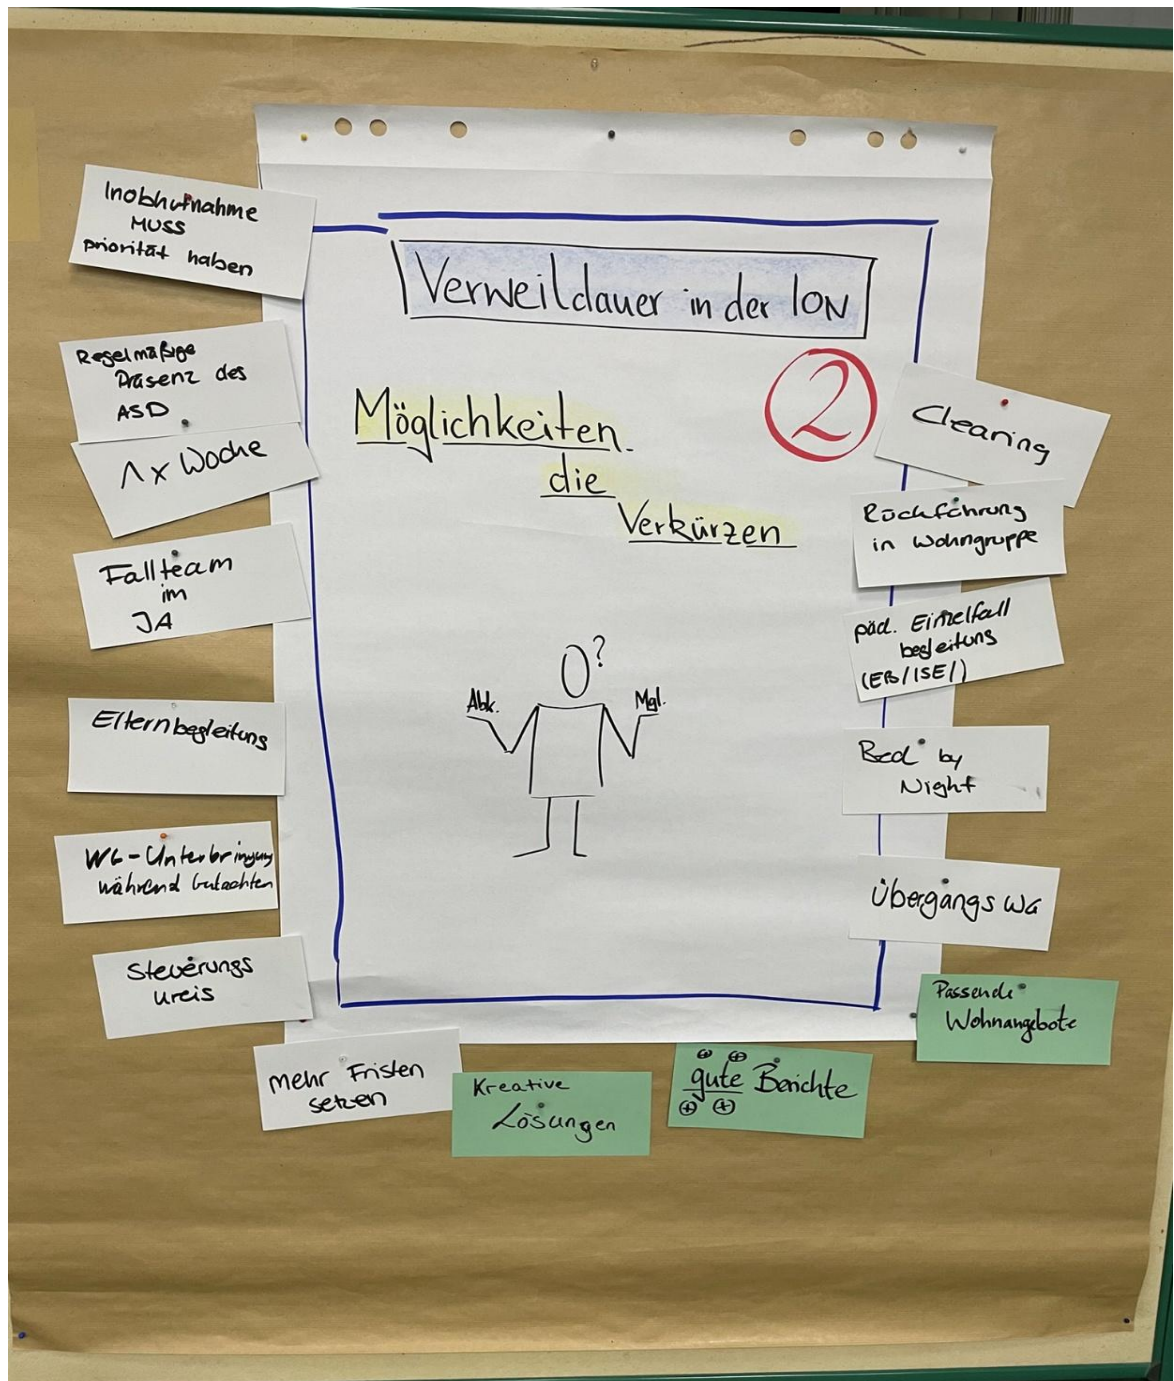 Verweildauer in der ION
2
Möglichkeiten
die
Verkürzen
?
Abk.
Mgl.
Inobhutnahme
MUSS
priorität haben
Regelmäßige
Präsenz des
ASD
1 x Woche
Fallteam
im
JA
Elternbegleitung
WG-Unterbringung
während Gutachten
Steuerungs
kreis
mehr Fristen
setzen
Kreative
Lösungen
gute Berichte
Passende
Wohnangebote
Clearing
Rückführung
in Wohngruppe
päd. Einzelfall
begleitung
(EB/ISE/)
Bed by
Night
Übergangs WG